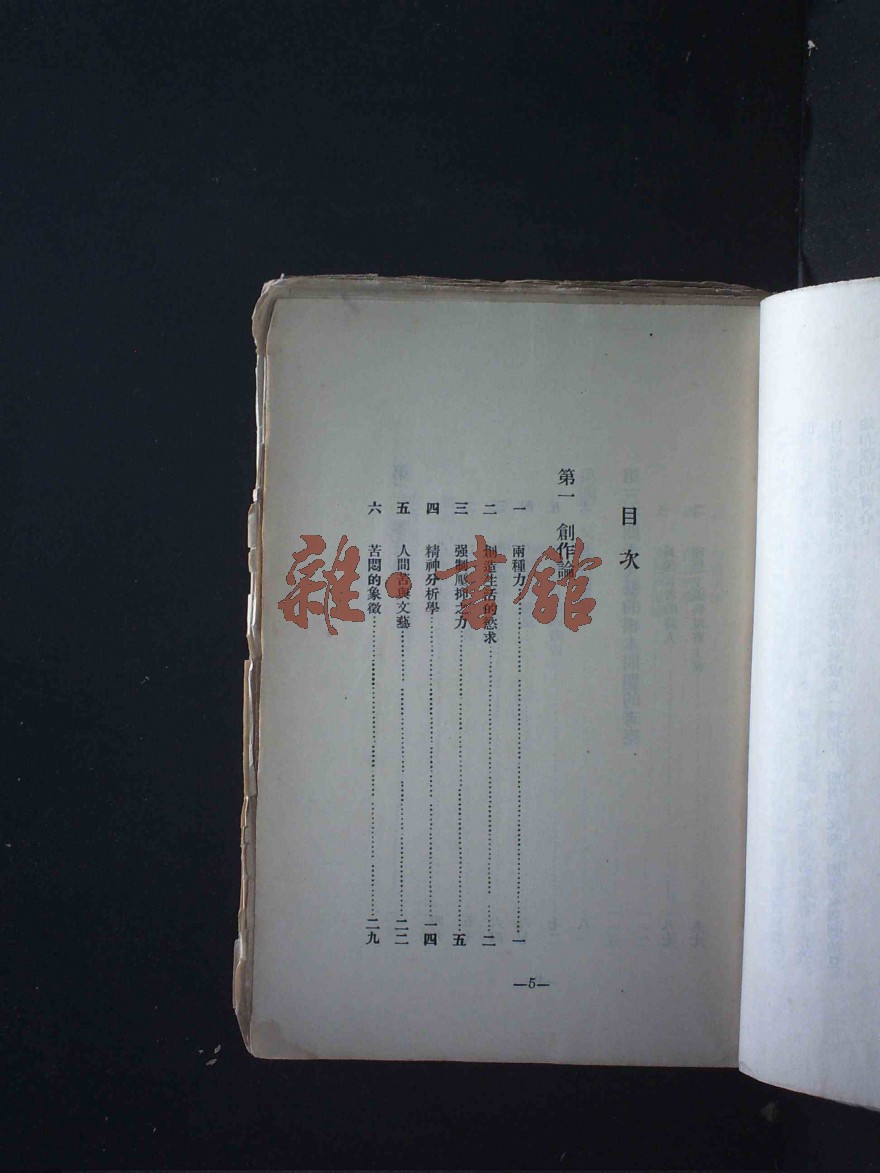 目次
第一 創作論
一 兩種力……………………一
二 創造生活的慾求……………………二
三 强制壓抑之力……………………五
四 精神分析學……………………一四
五 人間苦與文藝……………………二二
六 苦悶的象徵……………………二九
—5—
雜·書館